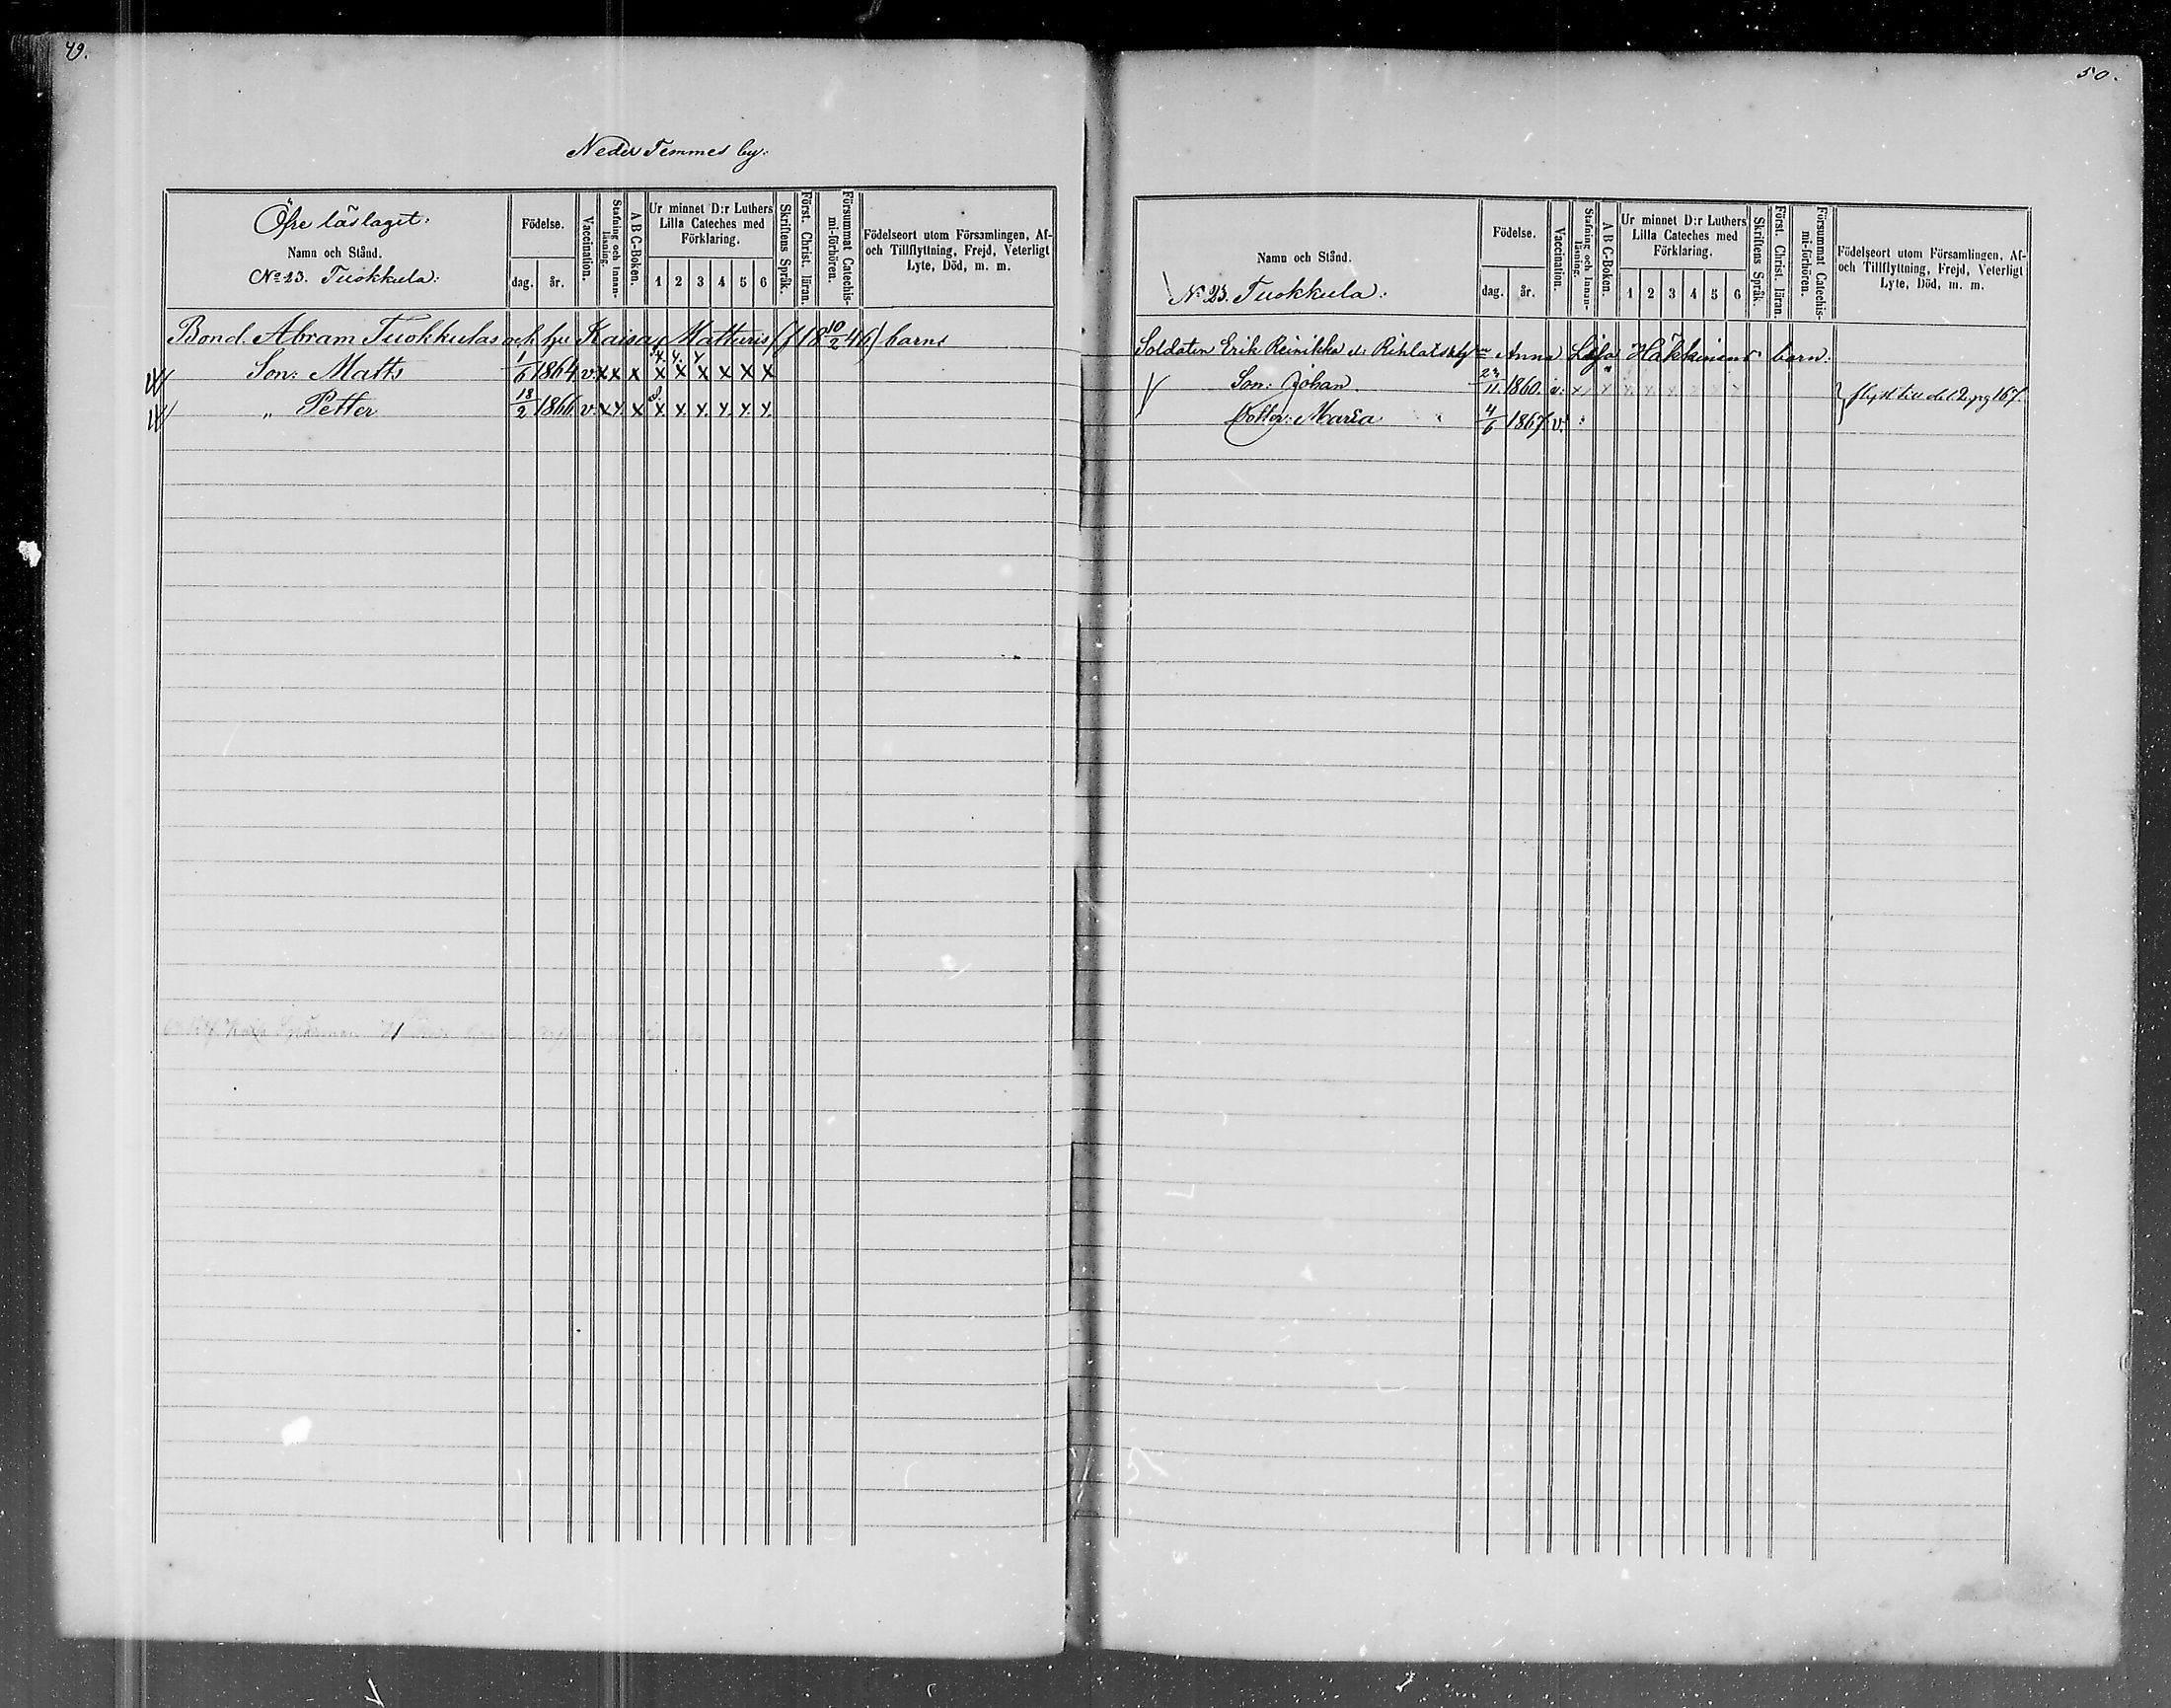 49.
Neder Temmes by:
Öfre läslaget:
Namn och Stånd.
No 23. Tuokkula:
Födelse.
dag. år.
Vaccination.
Stafning och Innanläsning.
A B C-Boken.
Ur minnet D:r Luthers
Lilla Cateches med
Förklaring.
1 2 3 4 5 6
Skriftens Språk.
Först. Christ. läran.
Försummat Catechismi-förhören.
Födelseort utom Församlingen, Af-
och Tillflyttning, Frejd, Veterligt
Lyte, Död, m. m.
Bond. Abram Tuokkulas och hu Kaisa Matturis (f 18 10/2 46) barns
Son: Matts 1/6 1864 v. x x x x x x x x x
„ Petter 18/2 1866 v. x x x x x x x x x
50.
Namn och Stånd.
No 23. Tuokkula:
Födelse.
dag. år.
Vaccination.
Stafning och Innanläsning.
A B C-Boken.
Ur minnet D:r Luthers
Lilla Cateches med
Förklaring.
1 2 3 4 5 6
Skriftens Språk.
Först. Christ. läran.
Försummat Catechismi-förhören.
Födelseort utom Församlingen, Af-
och Tillflyttning, Frejd, Veterligt
Lyte, Död, m. m.
Soldaten Erik Reinikka Anna Lisa Häkkinens barn.
Son: Johan 23/11 1860. v. x x x x x x x x
flytt till del 2 pg 167.
Dotter: Maria 4/6 1867 v.